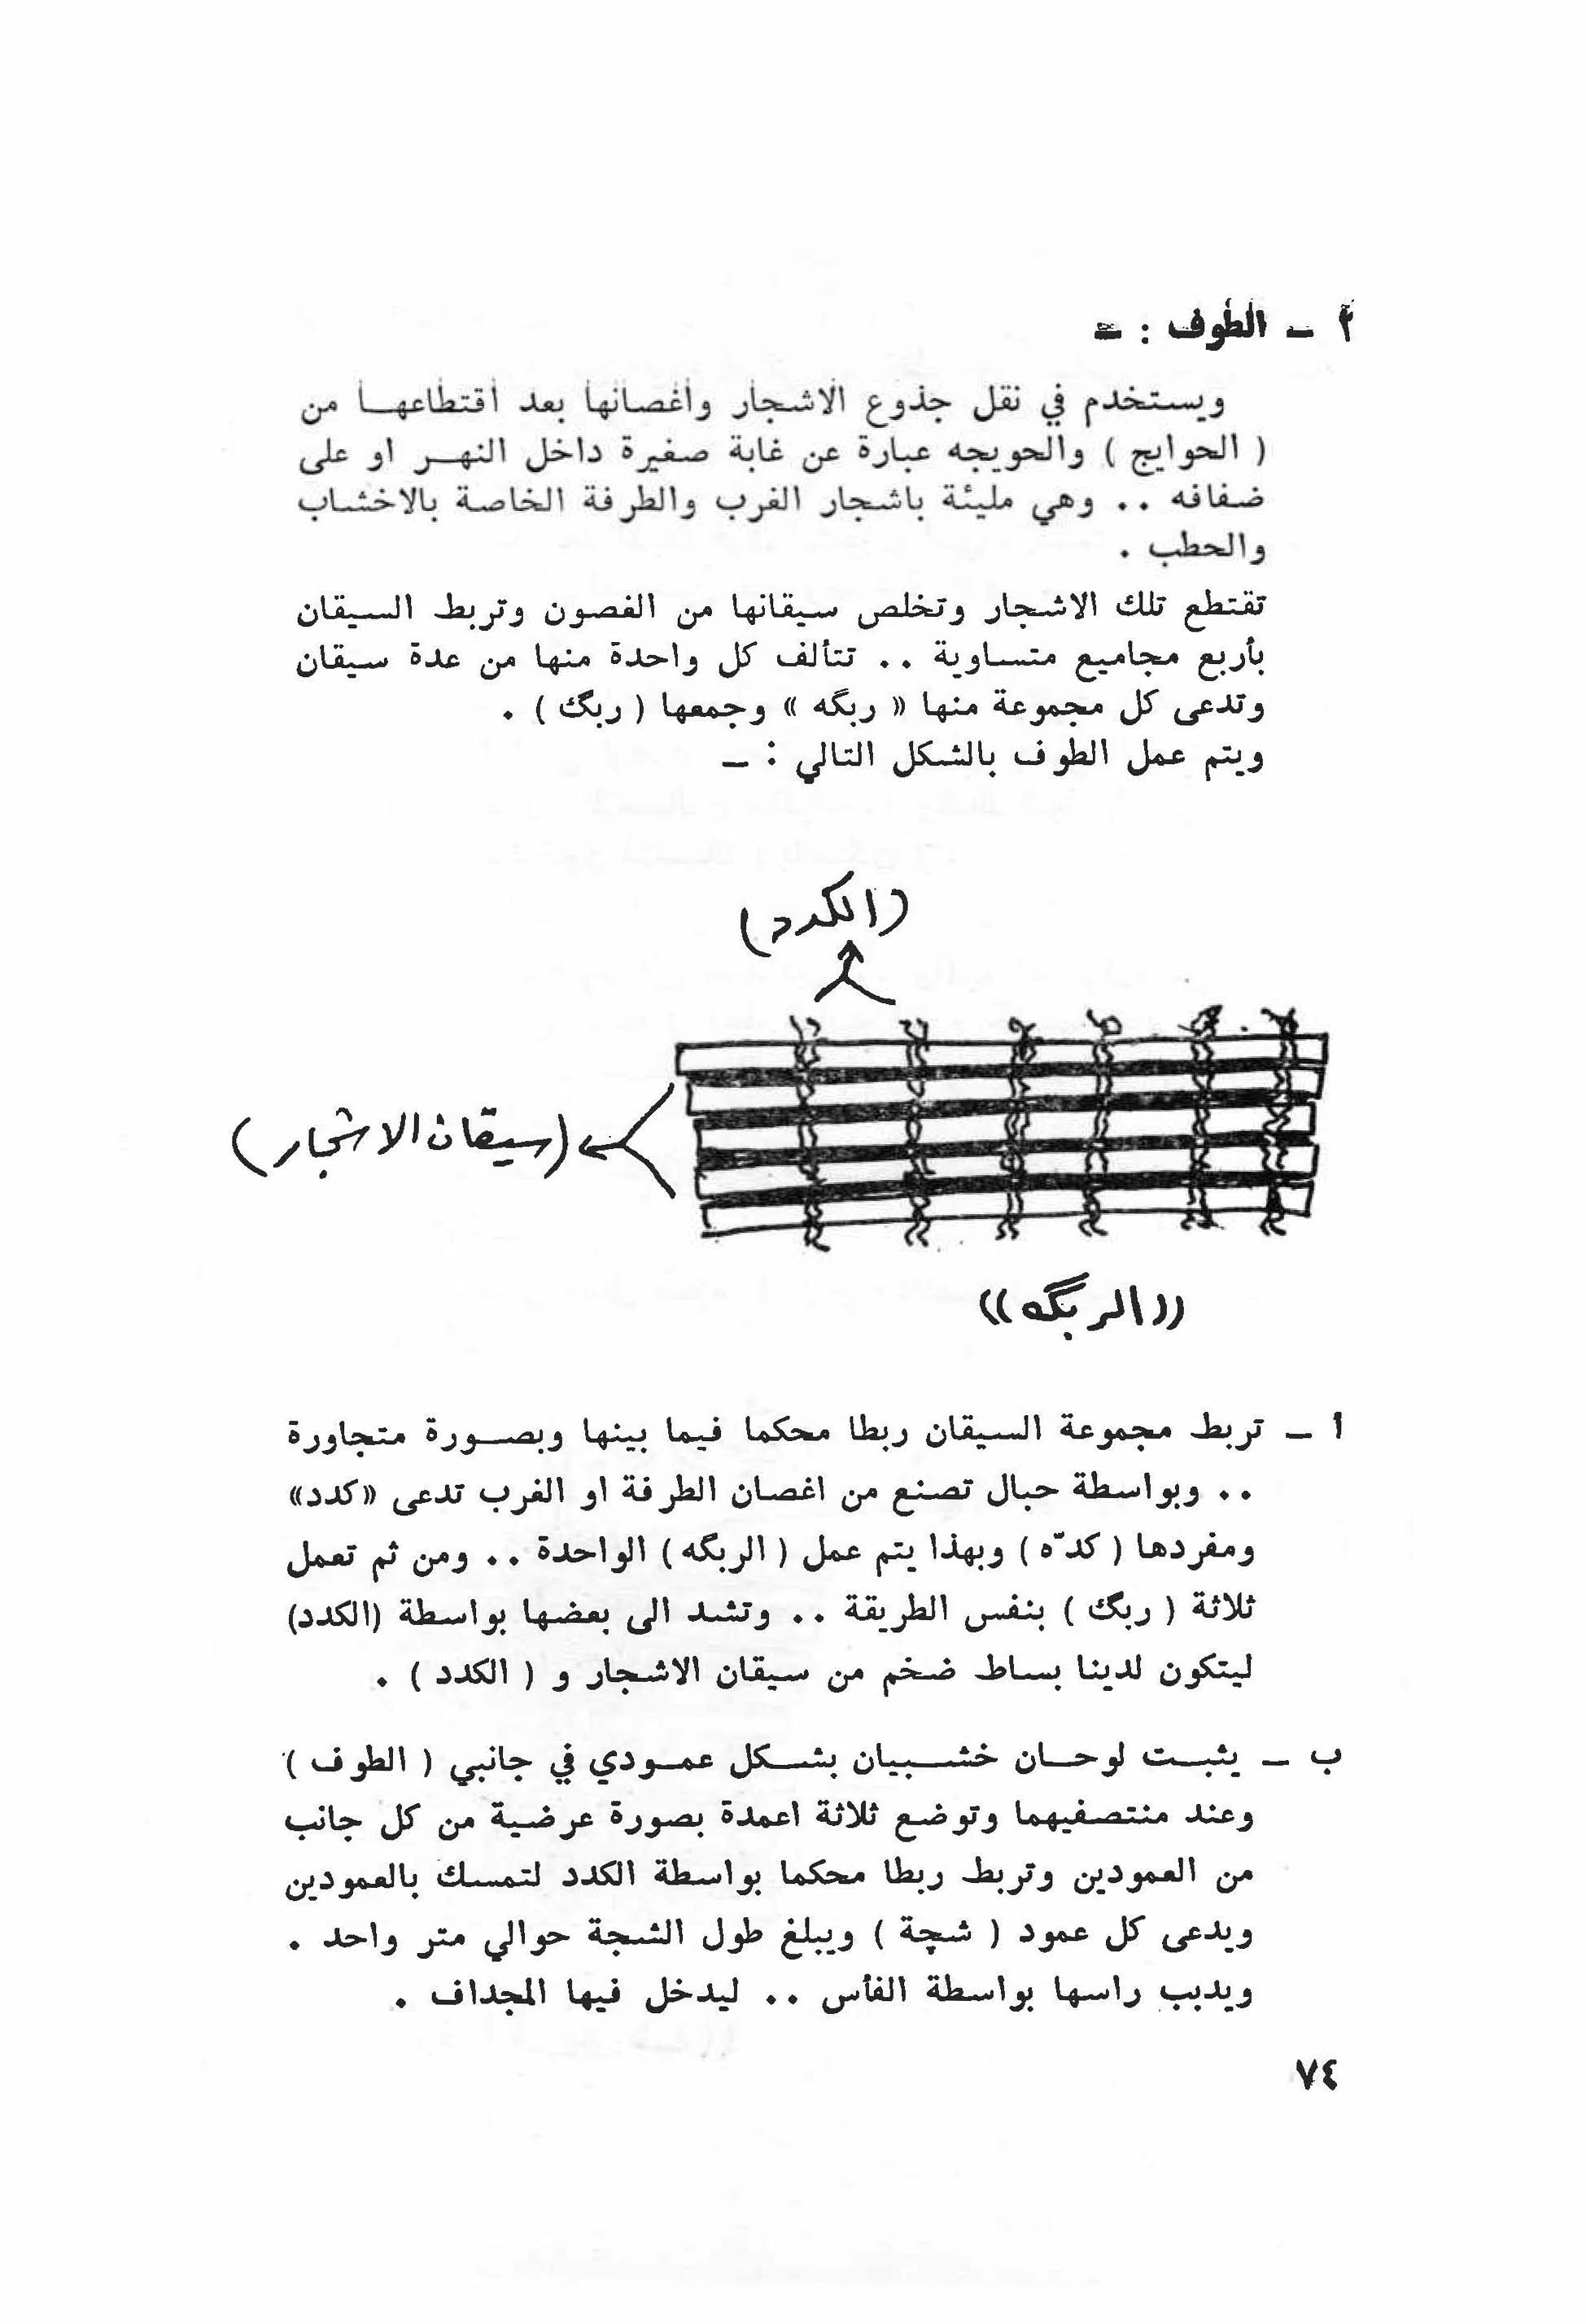 ٢ ـ الطوف : ـ
ويستخدم في نقل جذوع الاشجار واغصانها بعد اقتطاعهـا من
( الحوايج ) والحويجه عبارة عن غابة صغيرة داخل النهـر او على
ضفافه .. وهي مليئة باشجار الغرب والطرفة الخاصة بالاخشاب
والحطب .
تقتطع تلك الاشجار وتخلص سيقانها من الغصون وتربط السيقان
بأربع مجاميع متساوية .. تتألف كل واحدة منها من عدة سيقان
وتدعى كل مجموعة منها « ربگه » وجمعها ( ربگ ) .
ويتم عمل الطوف بالشكل التالي : ـ
(الكدد)
(سيقان الاشجار)
((الربگه))
أ ـ تربط مجموعة السيقان ربطا محكما فيما بينها وبصـورة متجاورة
.. وبواسطة حبال تصنع من اغصان الطرفة او الغرب تدعى «كدد»
ومفردها ( كدّه ) وبهذا يتم عمل ( الربگه ) الواحدة .. ومن ثم تعمل
ثلاثة ( ربگ ) بنفس الطريقة .. وتشد الى بعضها بواسطة (الكدد)
ليتكون لدينا بساط ضخم من سيقان الاشجار و ( الكدد ) .
ب ـ يثبـت لوحـان خشـبيان بشـكل عمـودي في جانبي ( الطوف )
وعند منتصفيهما وتوضع ثلاثة اعمدة بصورة عرضية من كل جانب
من العمودين وتربط ربطا محكما بواسطة الكدد لتمسك بالعمودين
ويدعى كل عمود ( شچة ) ويبلغ طول الشجة حوالي متر واحد .
ويدبب راسها بواسطة الفأس .. ليدخل فيها المجداف .
٧٤